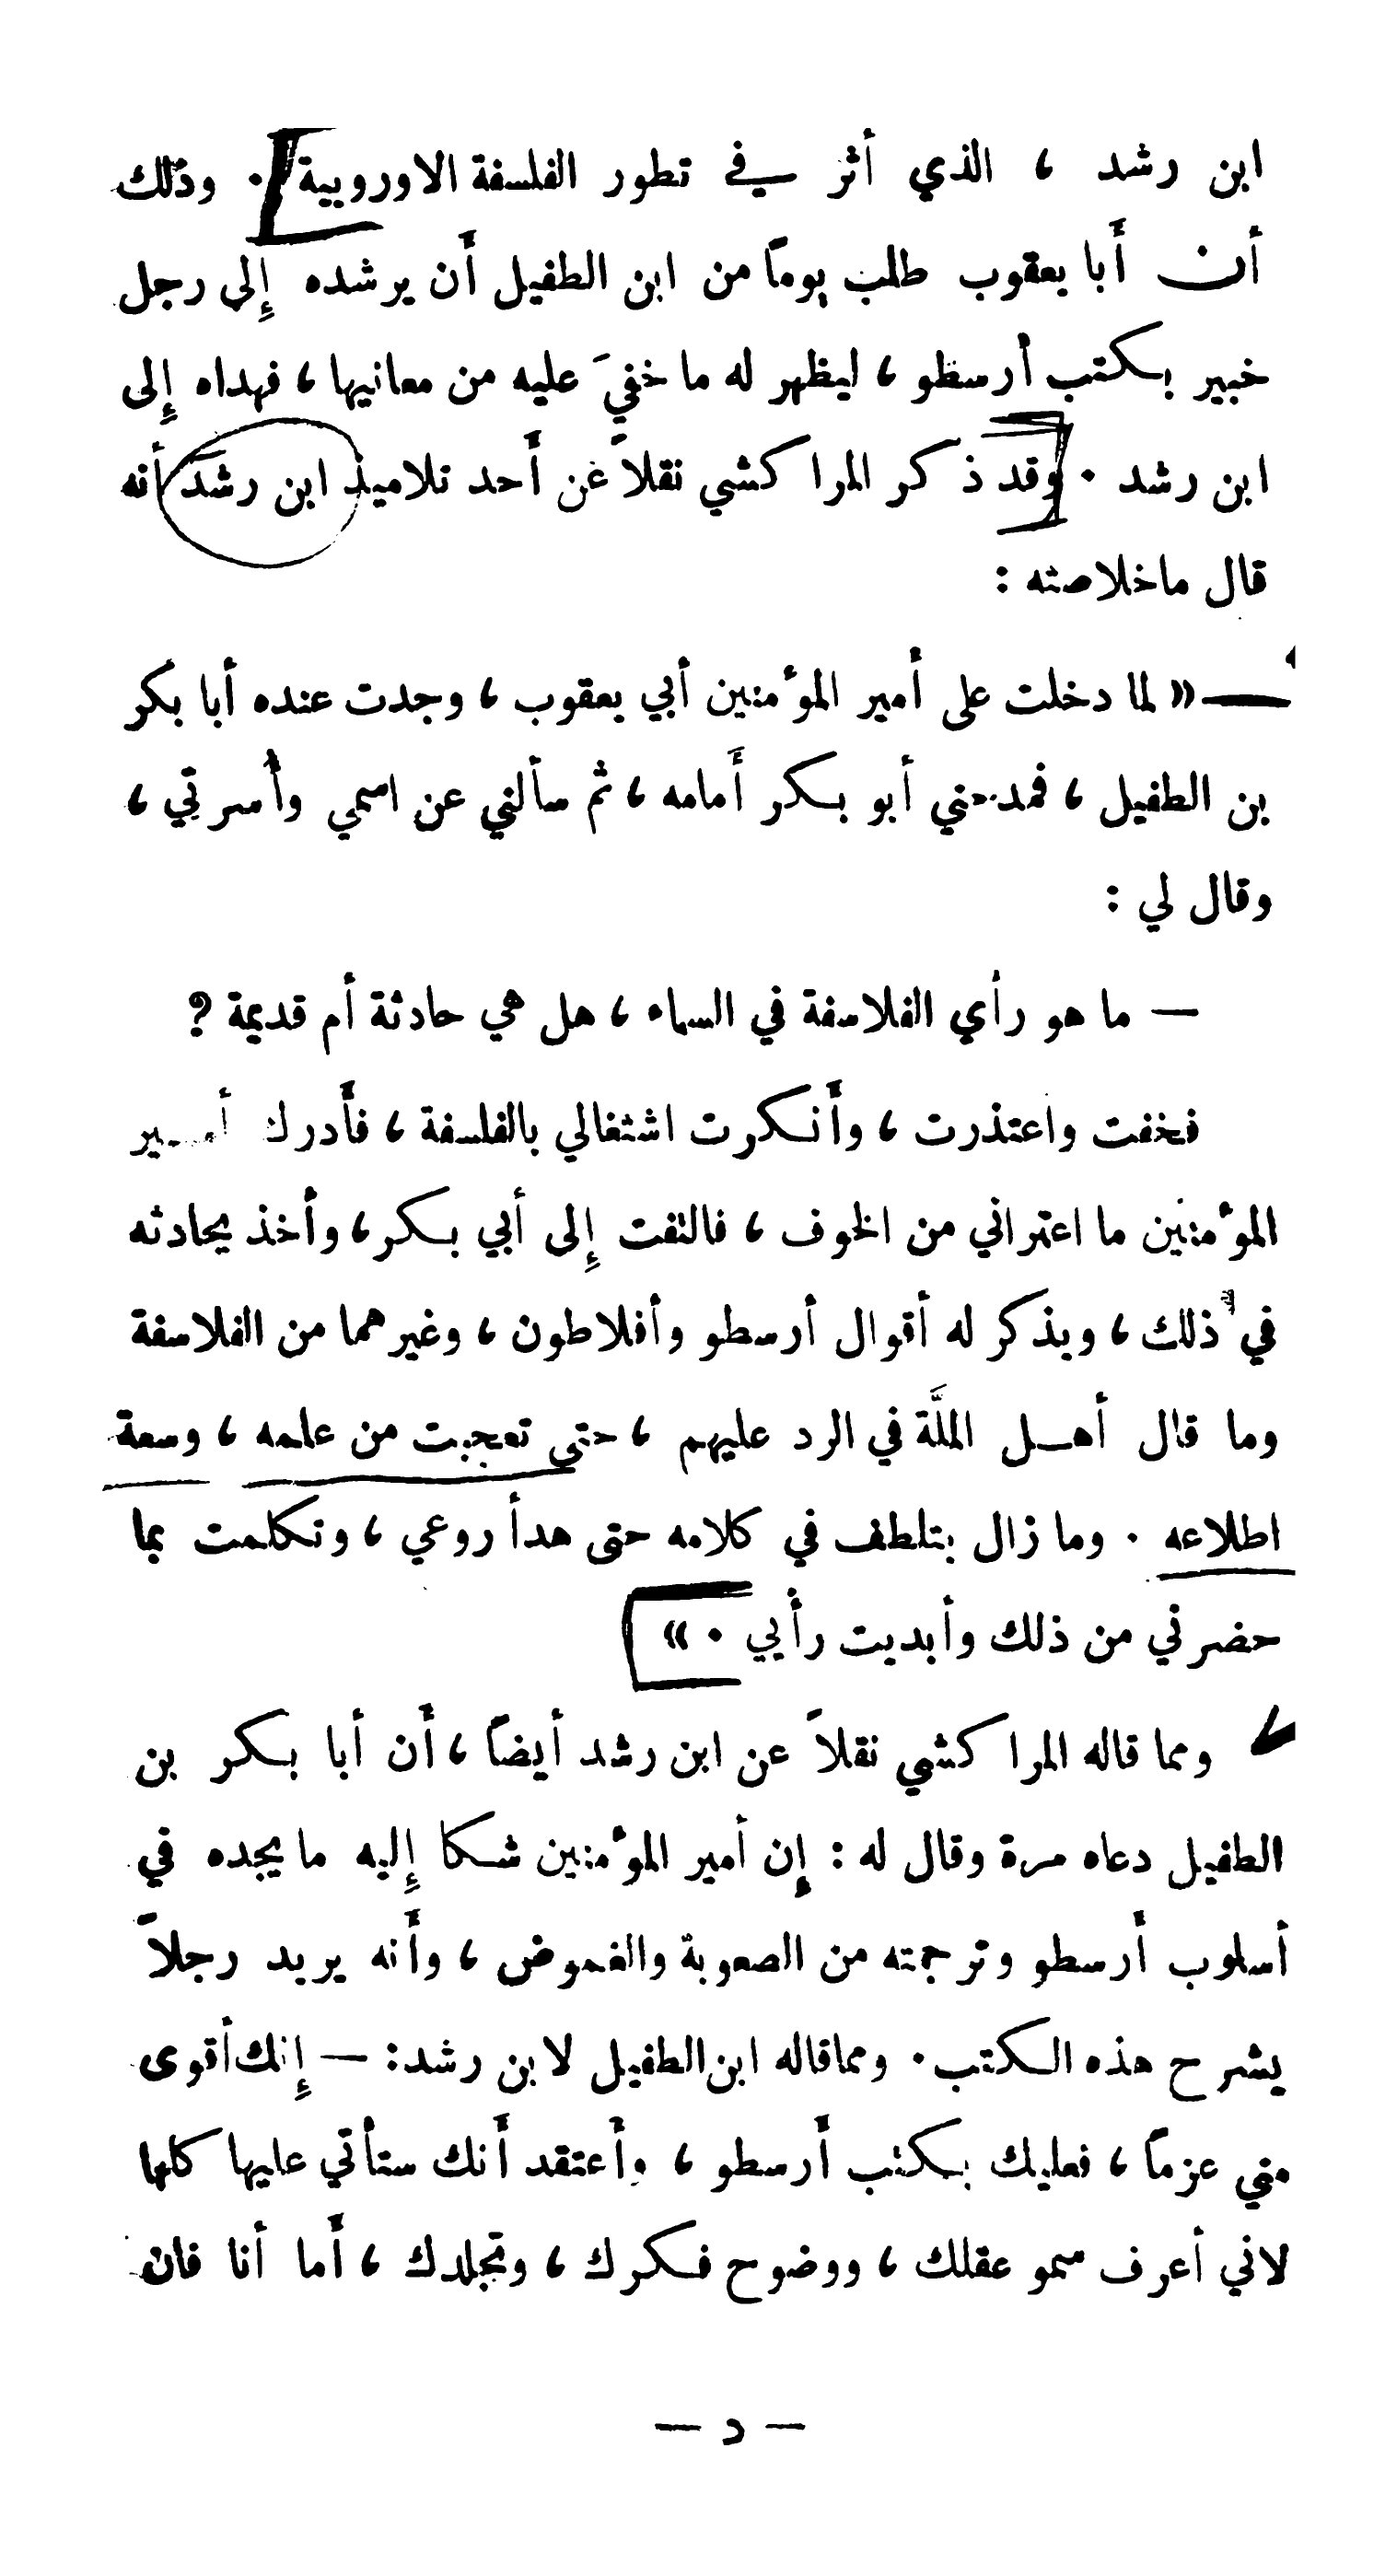 ابن رشد ، الذي أثر في تطور الفلسفة الاوروبية . وذلك
أن أَبا يعقوب طلب يوماً من ابن الطفيل أَن يرشده إِلى رجل
خبير بكتب أرسطو ، ليظهر له ما خفيَ عليه من معانيها ، فهداه إِلى
ابن رشد . وقد ذكر المراكشي نقلاً عن أَحد تلاميذ ابن رشد أنه
قال ماخلاصته :
— « لما دخلت على أمير المؤمنين أبي يعقوب ، وجدت عنده أبا بكر
بن الطفيل ، فمدحني أبو بكر أَمامه ، ثم سألني عن اسمي وأسرتي ،
وقال لي :
— ما هو رأي الفلاسفة في السماء ، هل هي حادثة أم قديمة ؟
فخفت واعتذرت ، وأَنكرت اشتغالي بالفلسفة ، فأَدرك أمير
المؤمنين ما اعتراني من الخوف ، فالتفت إِلى أبي بكر ، وأخذ يحادثه
في ذلك ، ويذكر له أقوال أرسطو وأفلاطون ، وغيرهما من الفلاسفة
وما قال أهل الملَّة في الرد عليهم ، حتى تعجبت من علمه ، وسعة
اطلاعه . وما زال يتلطف في كلامه حتى هدأ روعي ، وتكلمت بما
حضرني من ذلك وأبديت رأيي . »
ومما قاله المراكشي نقلاً عن ابن رشد أيضاً ، أَن أبا بكر بن
الطفيل دعاه مرة وقال له : إِن أمير المؤمنين شكا إِليه ما يجده في
أسلوب أَرسطو وترجمته من الصعوبة والغموض ، وأَنه يريد رجلاً
يشرح هذه الكتب . ومماقاله ابن الطفيل لابن رشد : — إِنك أقوى
مني عزماً ، فعليك بكتب أَرسطو ، وأعتقد أَنك ستأتي عليها كلها
لاني أعرف سمو عقلك ، ووضوح فكرك ، وتجلدك ، أَما أنا فان
— د —